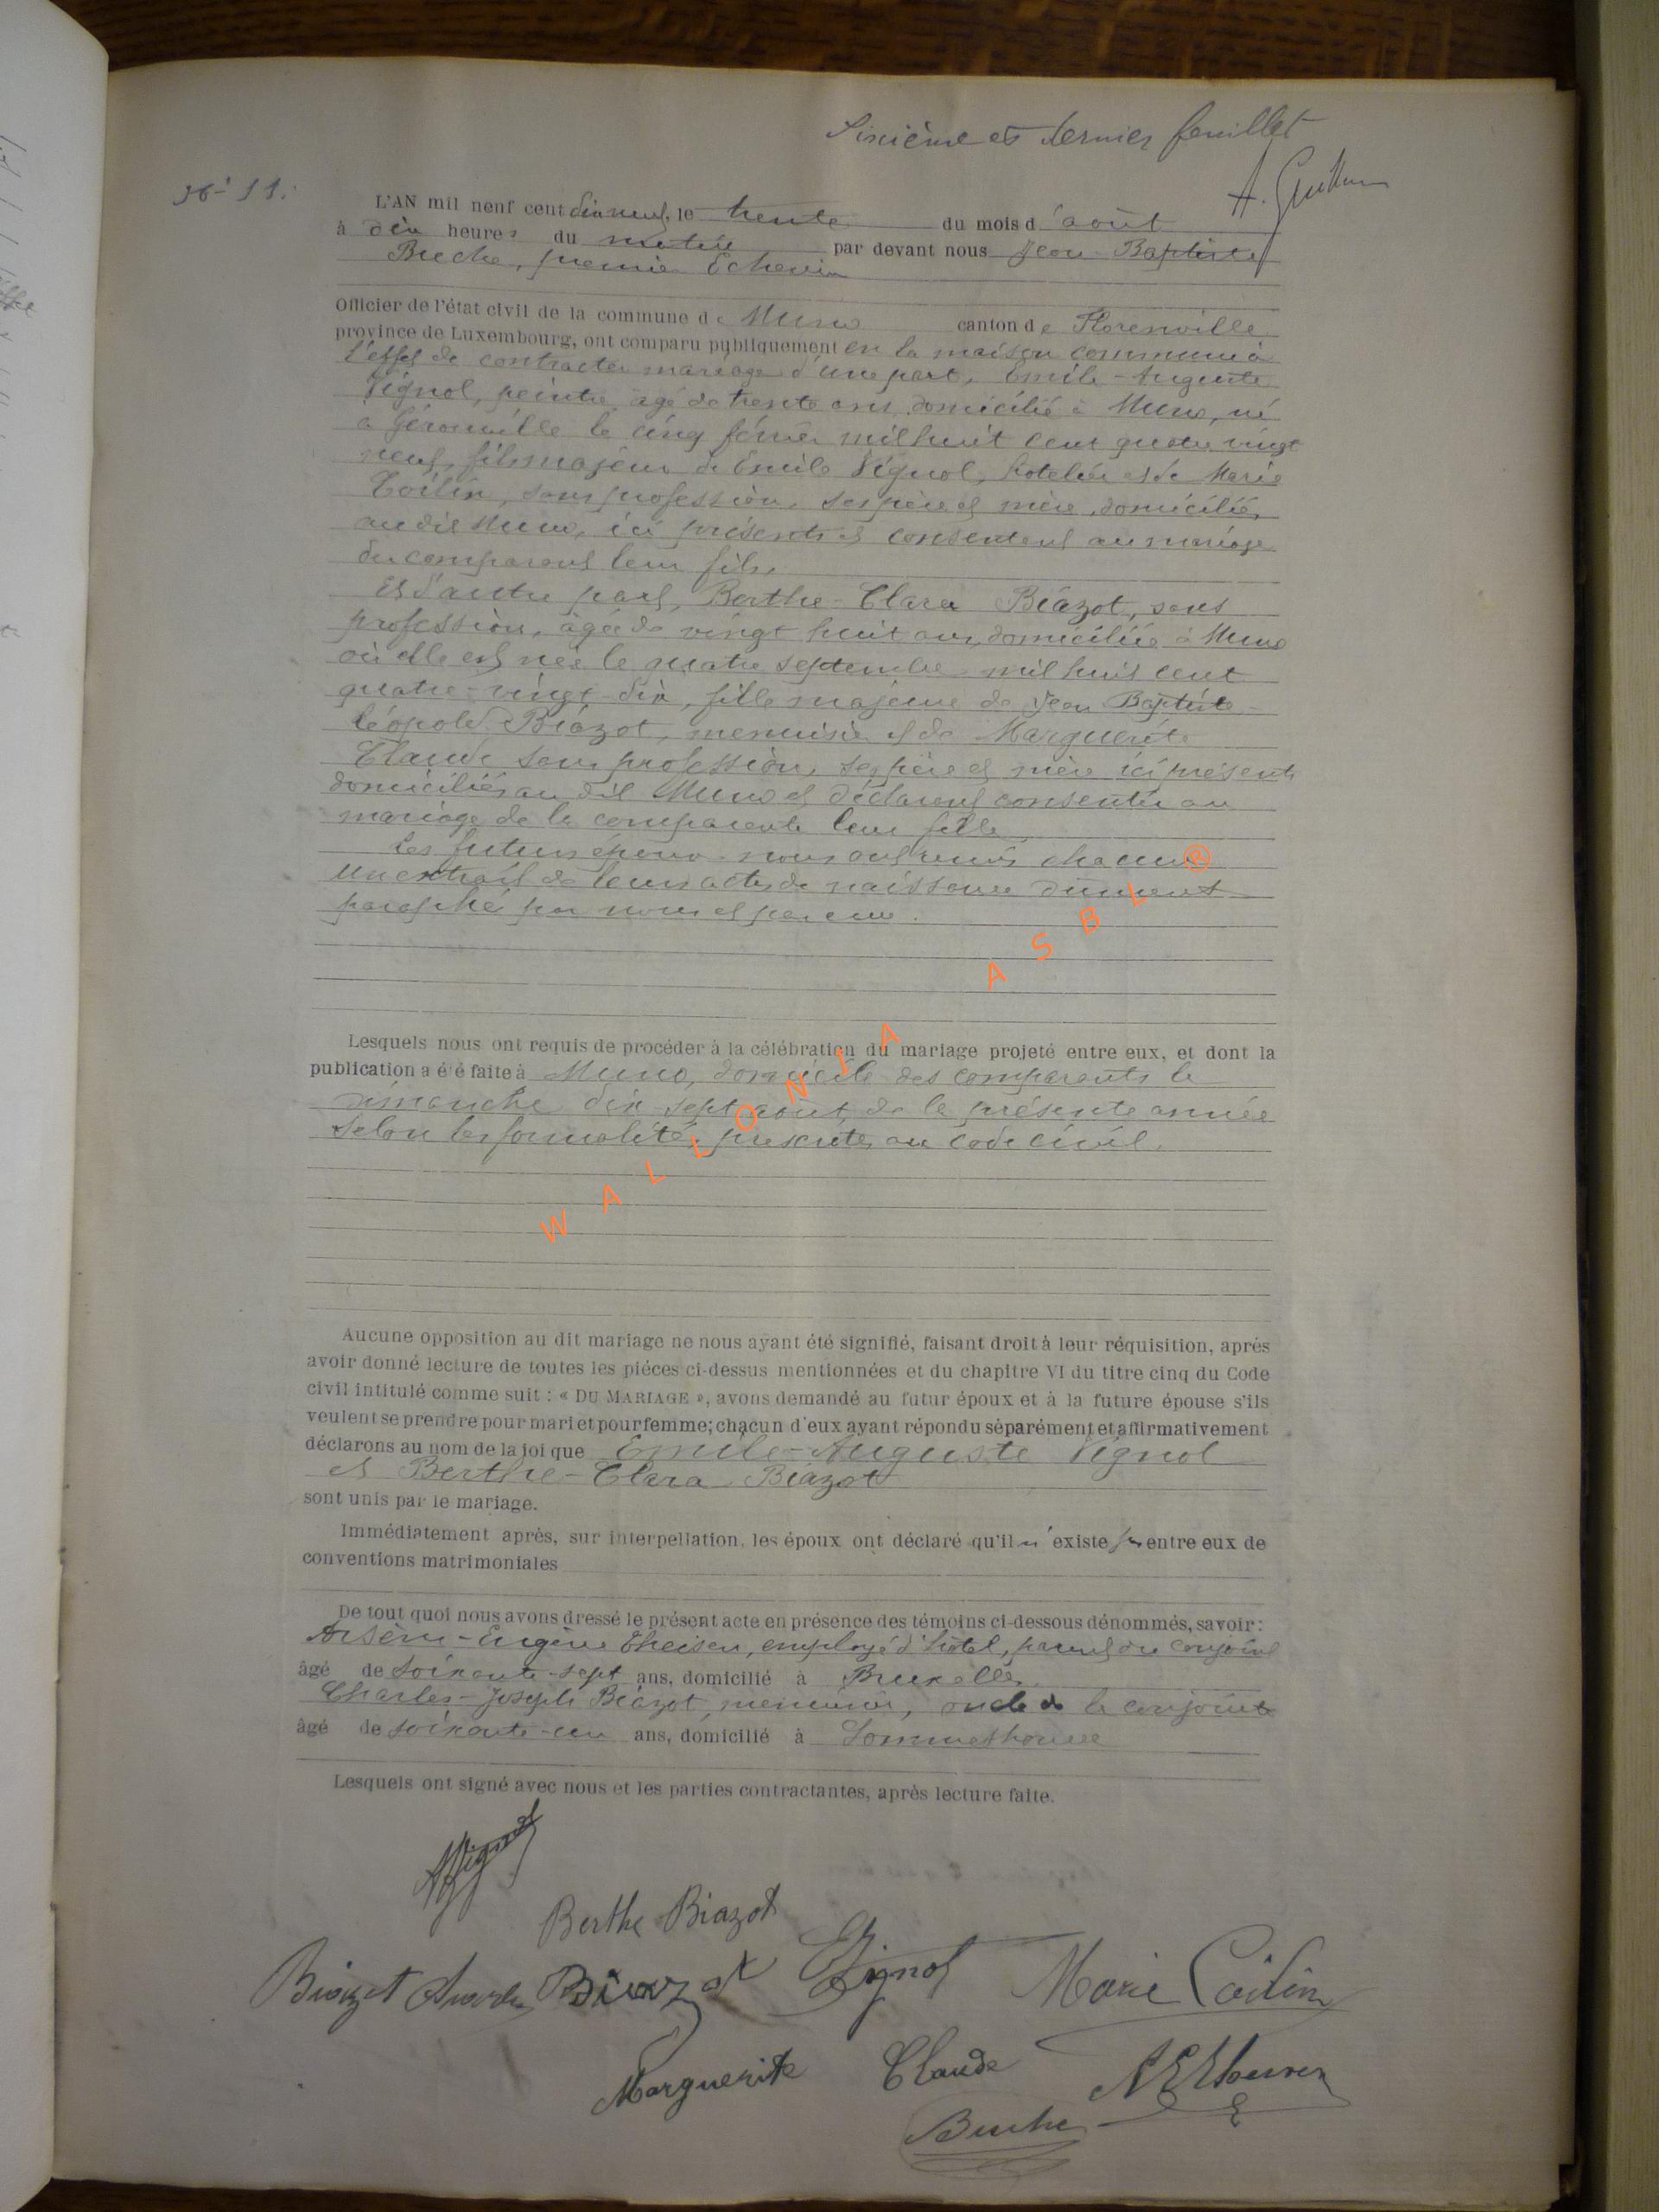 Sixième et dernier feuillet
A.
N° 11.
L'AN mil neuf cent dix neuf, le trente du mois d'août
à dix heures du matin par devant nous Jean-Baptiste
Buche, premier Echevin
Officier de l'état civil de la commune de Muno canton de Florenville
province de Luxembourg, ont comparu publiquement en la maison commune à
l'effet de contracter mariage d'une part, Emile-Auguste
Vignol, peintre, âgé de trente ans, domicilié à Muno, né
à Gérouville le cinq février mil huit cent quatre vingt
neuf, fils majeur de Emile Vignol, hotelier et de Marie
Collin, sans profession, ses père et mère, domiciliés
audit Muno, ici présents et consentant au mariage
du comparant leur fils.
Et d'autre part, Berthe-Clara Biazot, sans
profession, âgée de vingt huit ans, domiciliée à Muno
où elle est née le quatre septembre mil huit cent
quatre-vingt-dix, fille majeure de Jean Baptiste-
Léopold Biazot, menuisier et de Marguerite
Claude sans profession, ses père et mère ici présents
domiciliés au dit Muno et déclarant consentir au
mariage de la comparante leur fille
Les futurs époux nous ont remis chacun
un extrait de leurs actes de naissance dûment
paraphé par nous et par eux.
Lesquels nous ont requis de procéder à la célébration du mariage projeté entre eux, et dont la
publication a été faite à Muno, domicile des comparants le
dimanche dix sept août, de la présente année
selon les formalités prescrites au code civil.
WALLONIA ASBL®
Aucune opposition au dit mariage ne nous ayant été signifié, faisant droit à leur réquisition, après
avoir donné lecture de toutes les pièces ci-dessus mentionnées et du chapitre VI du titre cinq du Code
civil intitulé comme suit : « DU MARIAGE », avons demandé au futur époux et à la future épouse s'ils
veulent se prendre pour mari et pour femme; chacun d'eux ayant répondu séparément et affirmativement
déclarons au nom de la loi que Emile-Auguste Vignol
et Berthe-Clara Biazot
sont unis par le mariage.
Immédiatement après, sur interpellation, les époux ont déclaré qu'il n'existe pas entre eux de
conventions matrimoniales
De tout quoi nous avons dressé le présent acte en présence des témoins ci-dessous dénommés, savoir :
Arsène-Eugène Theisen, employé d'hôtel, parent du conjoint
âgé de soixante-sept ans, domicilié à Bruxelles
Charles-Joseph Biazot, menuisier, oncle de la conjointe
âgé de soixante-un ans, domicilié à
Lesquels ont signé avec nous et les parties contractantes, après lecture faite.
Vignol
Berthe Biazot
Biazot Charles Biazot Vignol Marie Collin
Marguerite Claude
Buche